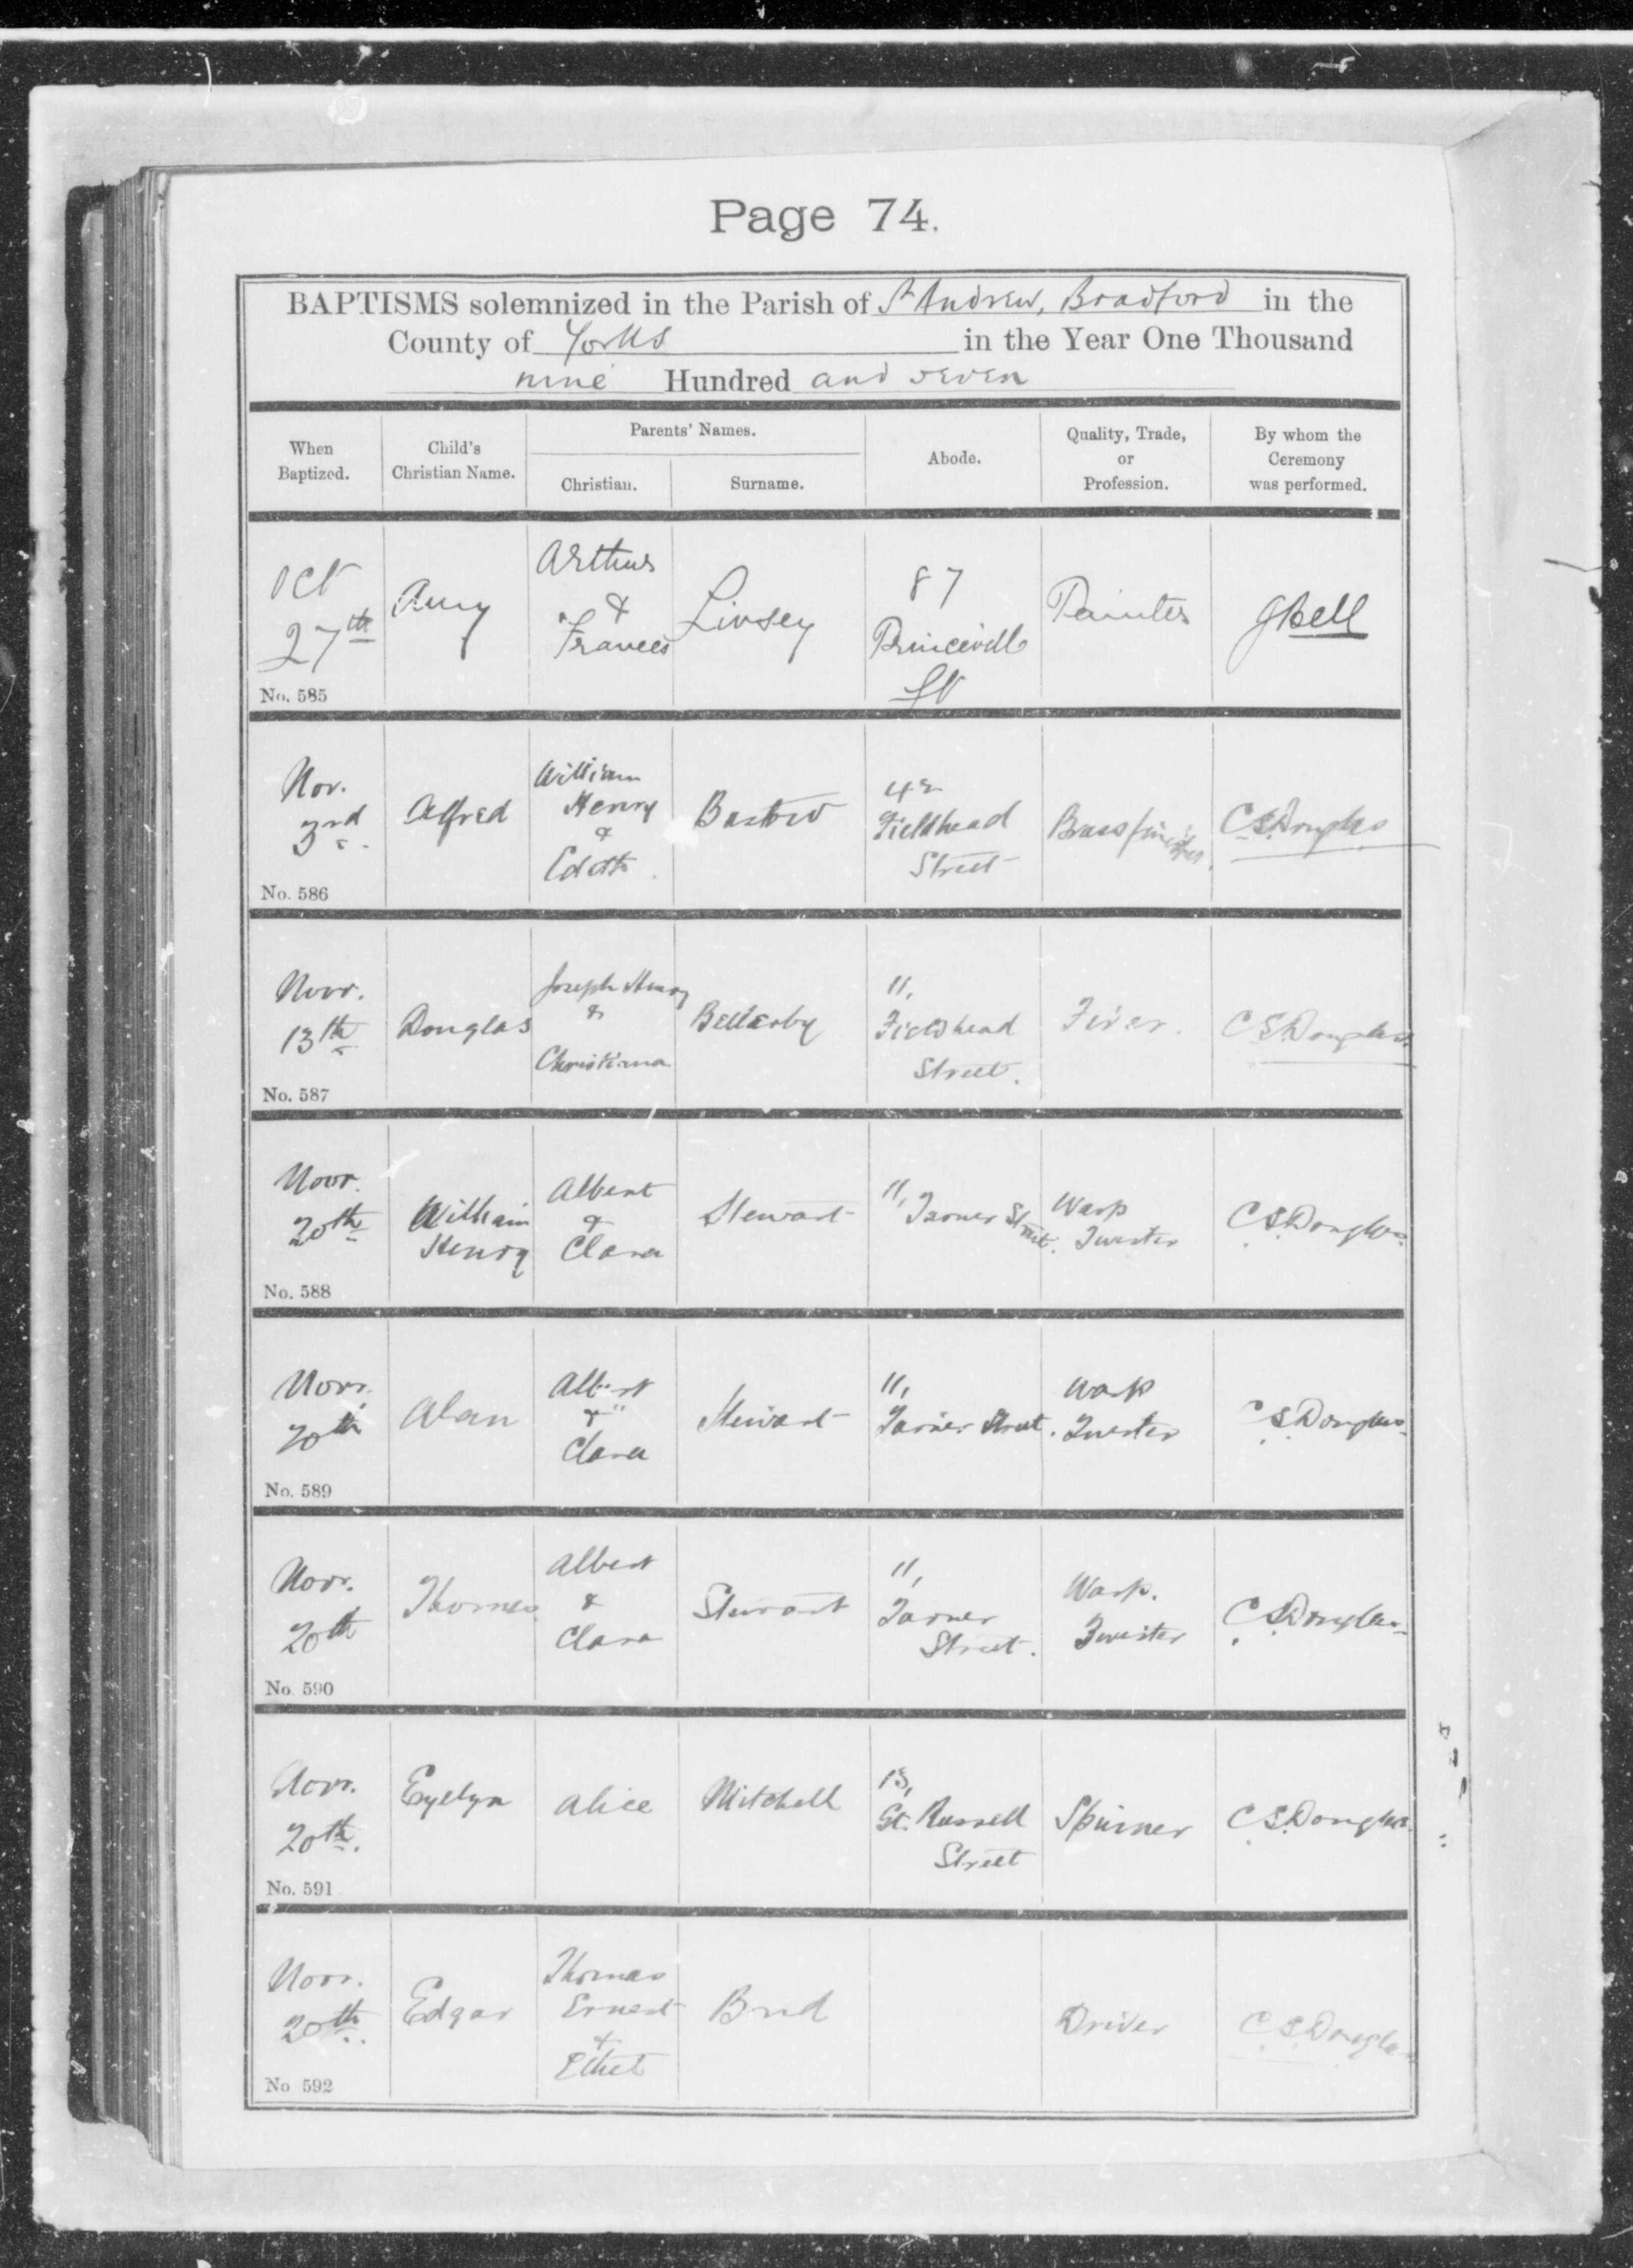 Page 74.
BAPTISMS solemnized in the Parish of St Andrew, Bradford in the
County of Yorks in the Year One Thousand
nine Hundred and seven
When Baptized.
Child's Christian Name.
Parents' Names.
Christian.
Surname.
Abode.
Quality, Trade, or Profession.
By whom the Ceremony was performed.
Oct
27th
No. 585
Amy
Arthur
&
Frances
Linsey
87
Princeville
St
Painter
J Bell
Nov.
3rd
No. 586
Alfred
William
Henry
&
Edith
Bastow
42
Fieldhead
Street
Brassfinisher.
C S Douglas
Novr.
13th
No. 587
Douglas
Joseph Henry
&
Christiana
Bellerby
11,
Fieldhead
Street.
C. S. Douglas.
Novr.
20th
No. 588
William
Henry
Albert
&
Clara
Stewart
11, Turner Street.
Warp
Twister
C. S. Douglas.
Novr.
20th
No. 589
Alan
Albert
&
Clara
Stewart
11,
Turner Street.
Warp
Twister
C. S. Douglas.
Novr.
20th
No. 590
Thomas
Albert
&
Clara
Stewart
11,
Turner
Street.
Warp.
Twister
C. S. Douglas.
Novr.
20th.
No. 591
Evelyn
Alice
Mitchell
Gt. Russell
Street
Spinner
C. S. Douglas.
Novr.
20th.
No 592
Edgar
Thomas
Ernest
&
Ethel
Driver
C. S. Douglas